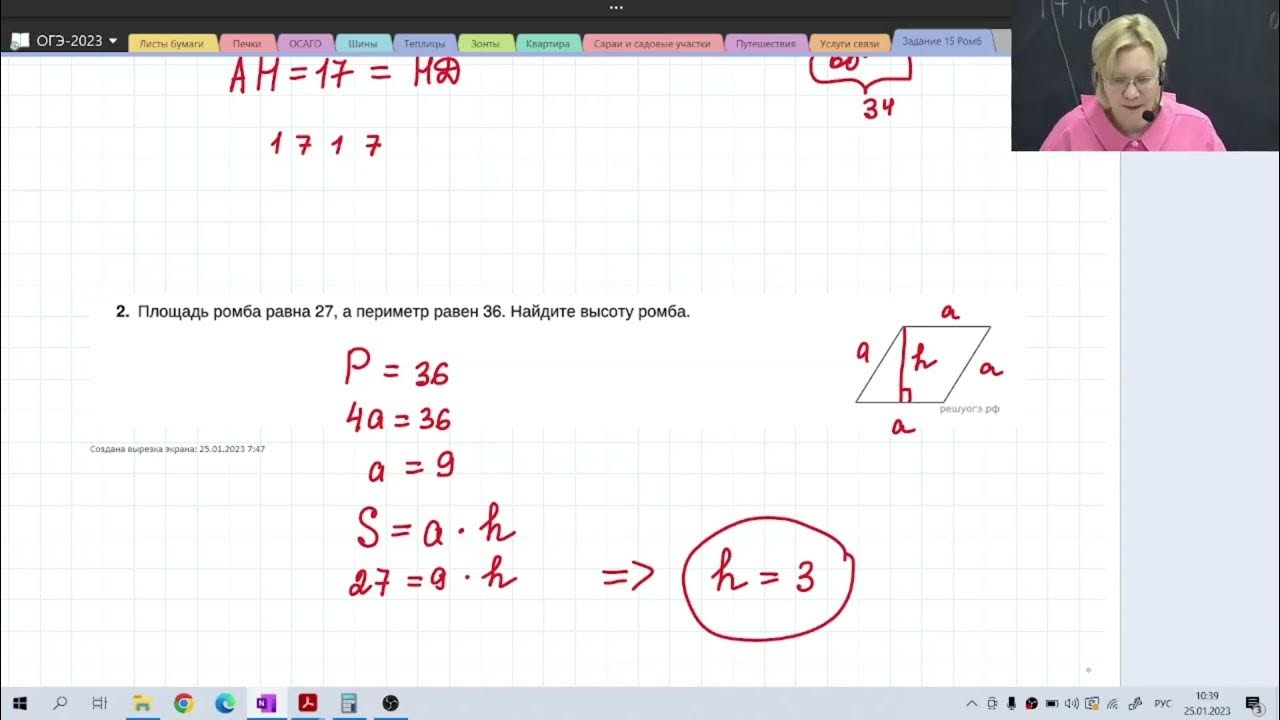 ОГЭ-2023
Листы бумаги
Печки
ОСАГО
Шины
Теплицы
Зонты
Квартира
Сараи и садовые участки
Путешествия
Услуги связи
Задание 15 Ромб
AH = 17 = HD
60°
34
1 7 1 7
2. Площадь ромба равна 27, а периметр равен 36. Найдите высоту ромба.
a
a h a
a
решуогэ.рф
P = 36
4a = 36
Создана вырезка экрана: 25.01.2023 7:47
a = 9
S = a · h
27 = 9 · h => h = 3
РУС
10:39
25.01.2023
3